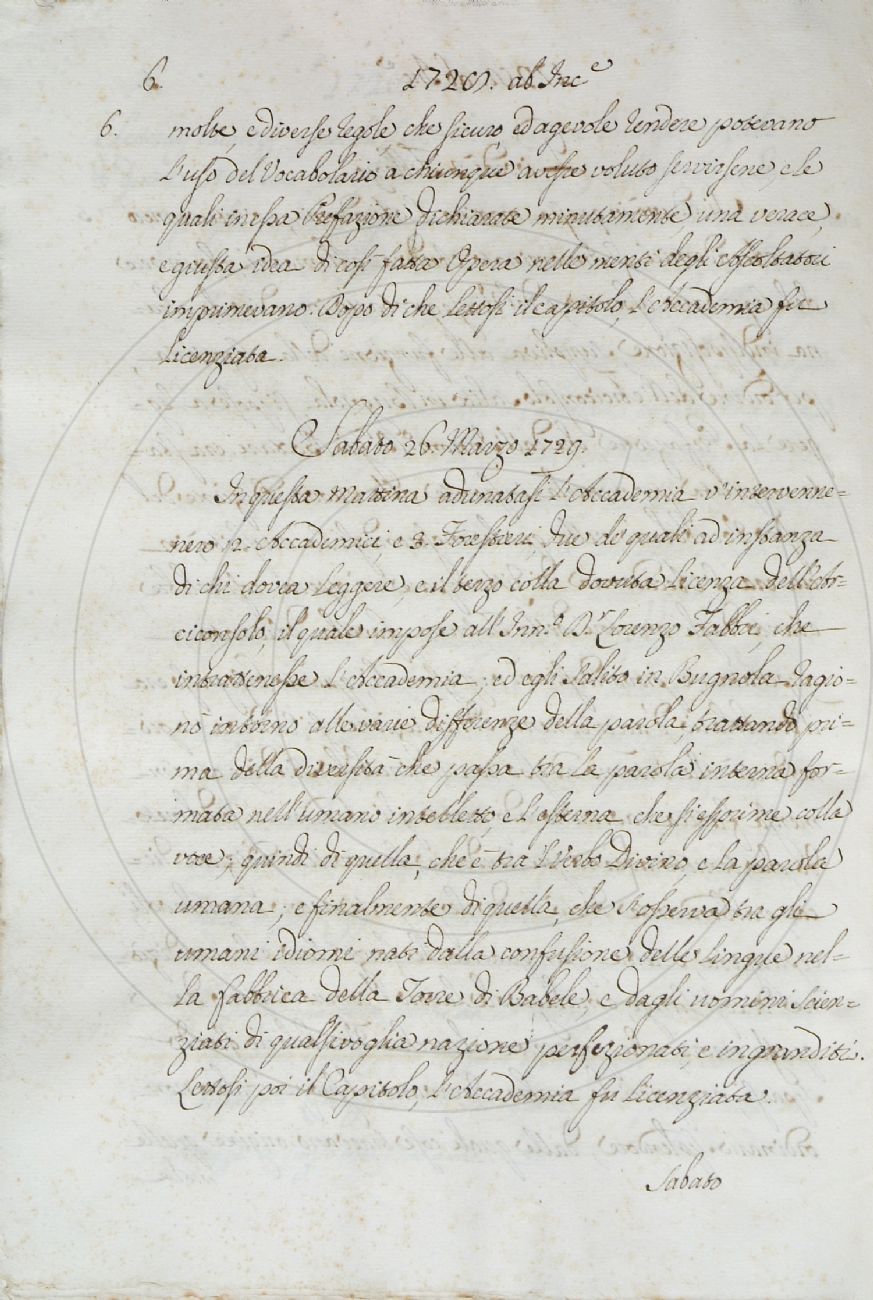 6. 1729. ab Inc.e
6. molte, e diverse regole, che sicuro ed agevole rendere potevano
l'uso del Vocabolario a chiunque avesse voluto servirsene, e le
quali in essa Prefazione dichiarate minutamente, una verace,
e giusta idea di così fatta Opera nelle menti degli Ascoltatori
imprimevano. Dopo di che lettosi il capitolo, l'Accademia fu
licenziata.
Sabato 26. Marzo 1729.
In questa mattina adunatasi l'Accademia v'intervenne=
nero 12. Accademici, e 3. Forestieri, due de' quali ad instanza
di chi dovea leggere, e il terzo colla dovuta licenza dell'Ar=
ciconsolo, il quale impose all'Inn.o D.r Lorenzo Fabbri, che
intrattenesse l'Accademia; ed egli salito in Bugnola ragio=
nò intorno alle varie differenze della parola, trattando pri=
ma della diversità che passa tra la parola interna for=
mata nell'umano intelletto, e l'esterna, che si esprime colla
voce; quindi di quella, che è tra 'l Verbo Divino, e la parola
umana; e finalmente di questa, che s'osserva tra gli
umani idiomi nati dalla confusione delle lingue nel=
la fabbrica della Torre di Babele, e dagli uomini scien=
ziati di qualsivoglia nazione perfezionati, e ingranditi.
Lettosi poi il Capitolo, l'Accademia fu licenziata.
Sabato